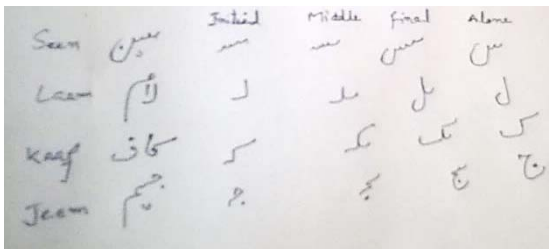 Initial Middle Final Alone
Seen سین سـ ـسـ ـس س
Laem لأم لـ ـلـ ـل ل
Kaaf کاف کـ ـکـ ـک ک
Jeem جیم جـ ـجـ ـج ج